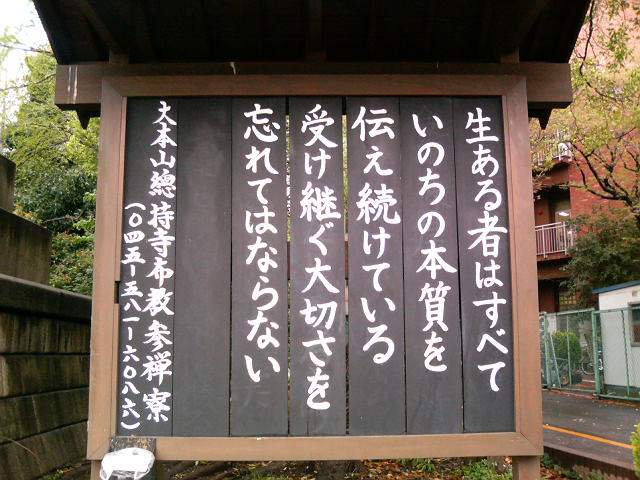 生ある者はすべて
いのちの本質を
伝え続けている
受け継ぐ大切さを
忘れてはならない
大本山總持寺布教参禅寮
(〇四五-五八一-六〇八六)